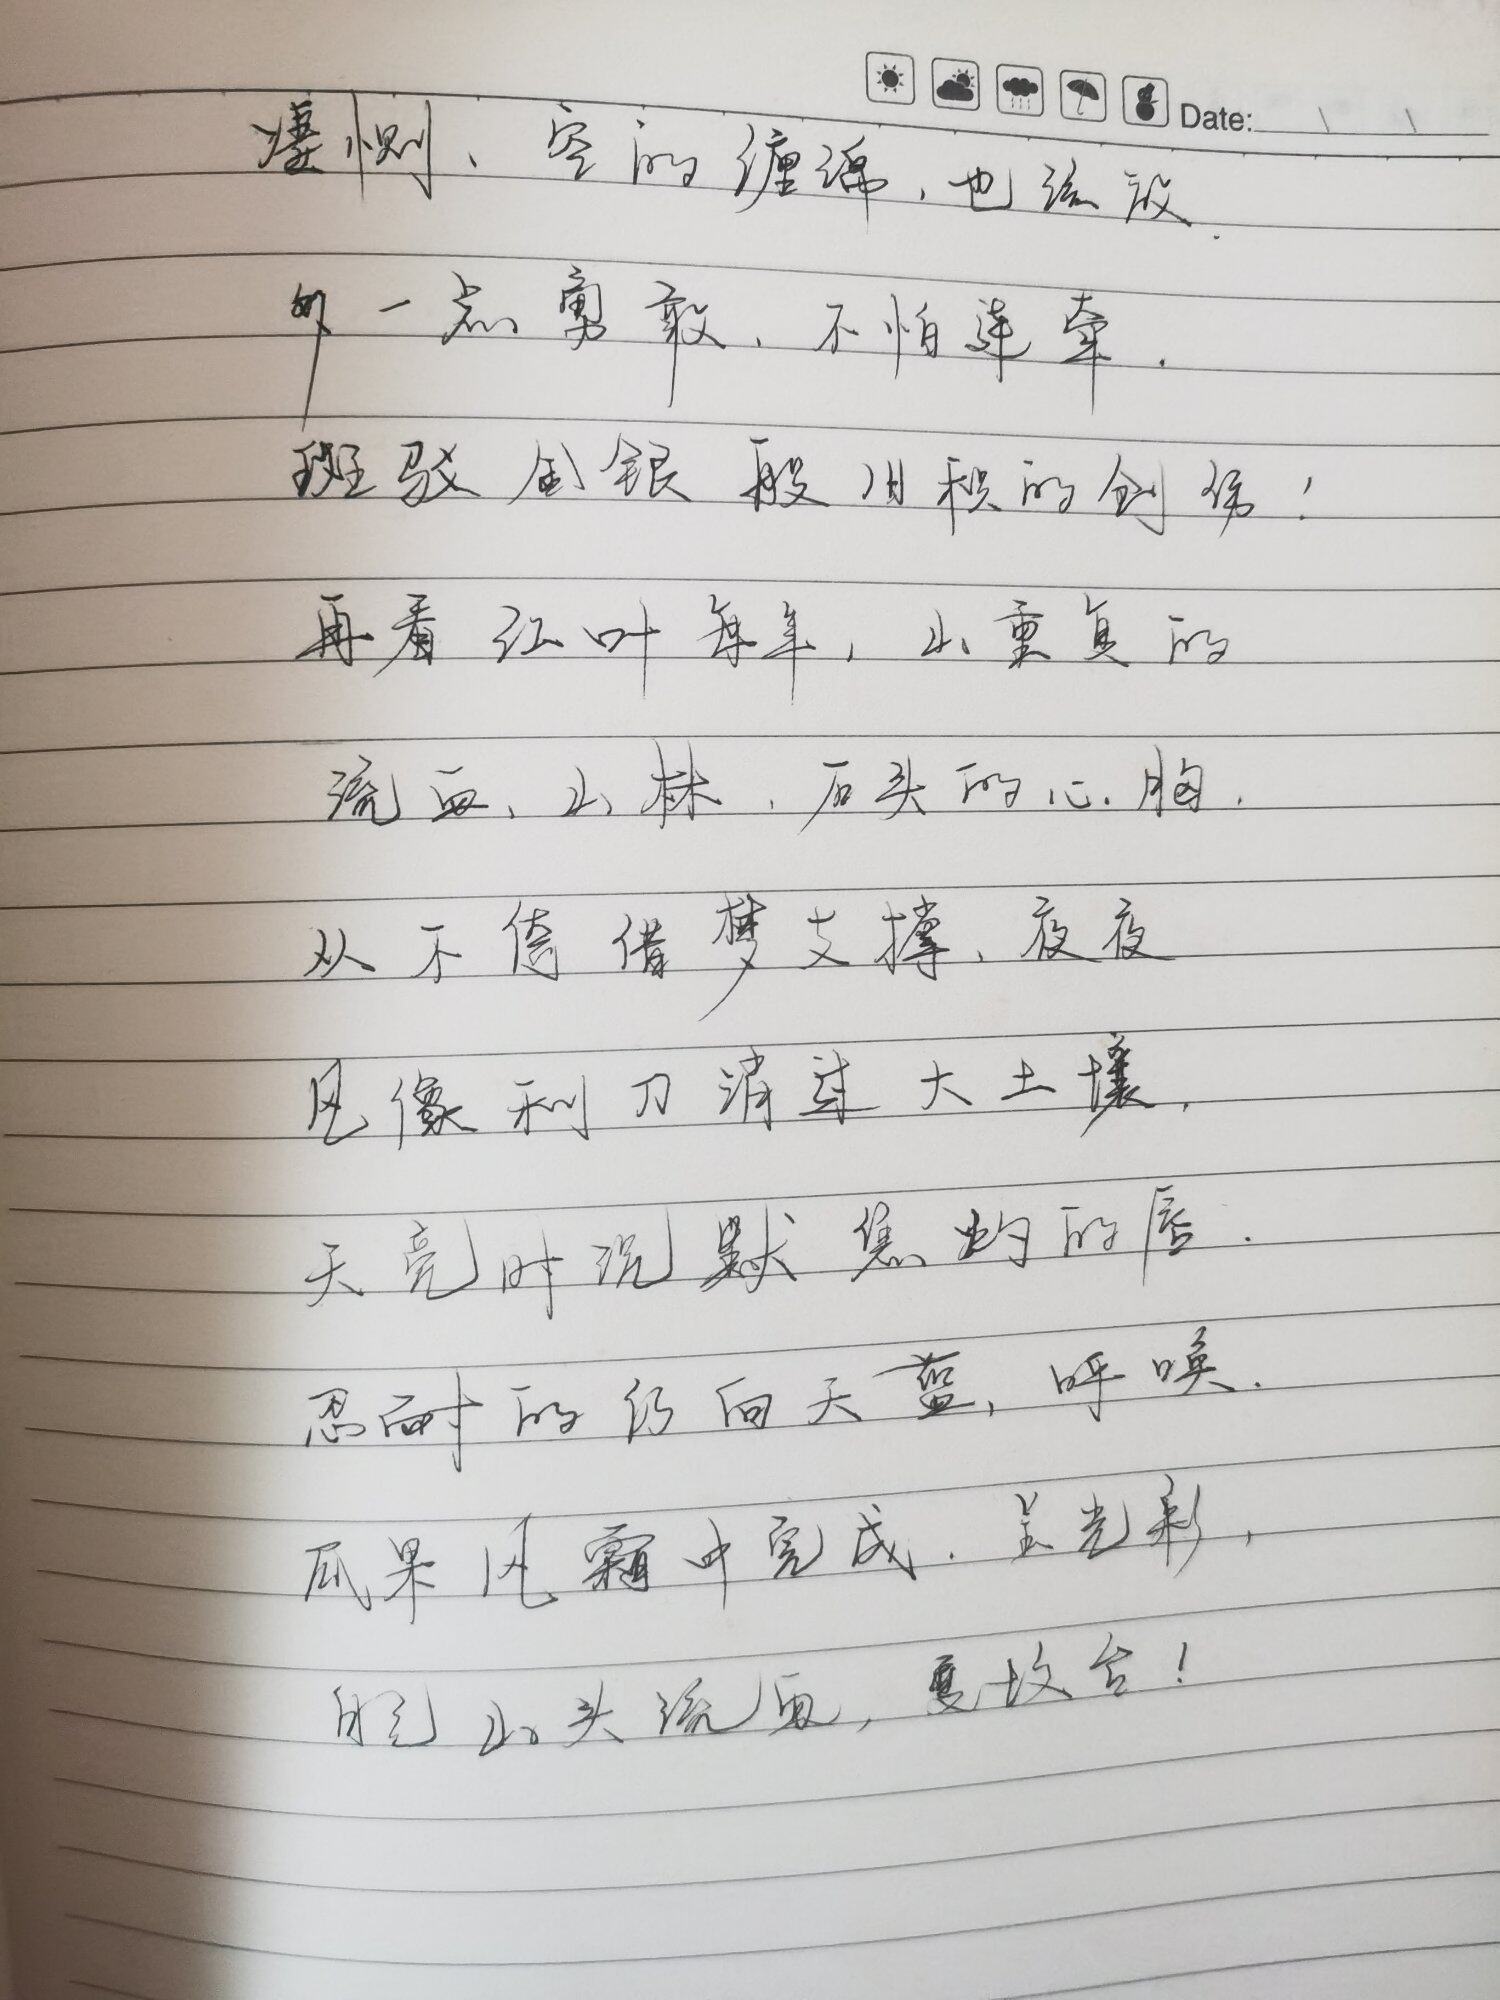 Date:
凄恻、空的缠绵，也该设
外一点勇敢，不怕连牵。
斑驳金银般堆积的创伤！
再看红叶每年，山重复的
流血、山林，石头的心胸，
从不倚借梦支撑、夜夜
风像利刀消过大土壤，
天亮时沉默焦灼的唇。
忍耐的仍向天蓝，呼唤。
瓜果风霜中完成，呈光彩，
自己山头流血，变坟台！